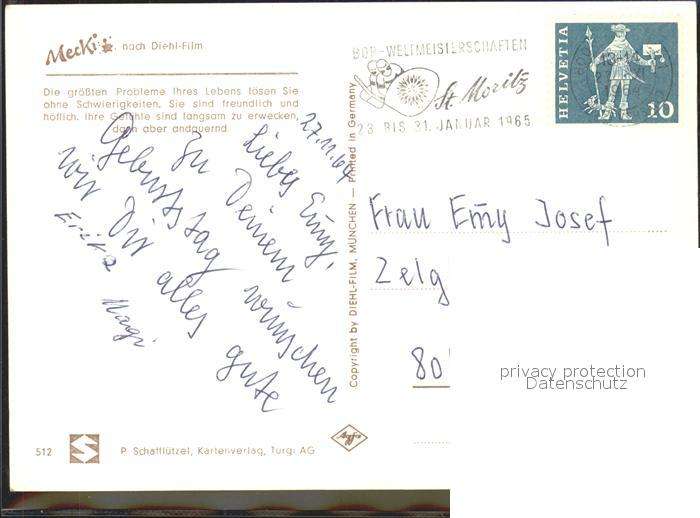 Mecki nach Diehl-Film
Die größten Probleme Ihres Lebens lösen Sie
ohne Schwierigkeiten. Sie sind freundlich und
höflich. Ihre Gefühle sind langsam zu erwecken,
dann aber andauernd.
27.11.64
Liebes Emy,
Zu Deinem
Geburtstag wünschen
wir Dir alles gute
Erika
Magi
512
P. Schafflützel, Kartenverlag, Turgi AG
Agfa
Copyright by DIEHL-FILM, MÜNCHEN — Printed in Germany
BOB-WELTMEISTERSCHAFTEN
St. Moritz
23. BIS 31. JANUAR 1965
HELVETIA
10
Frau Emy Josef
Zelg
80
privacy protection
Datenschutz